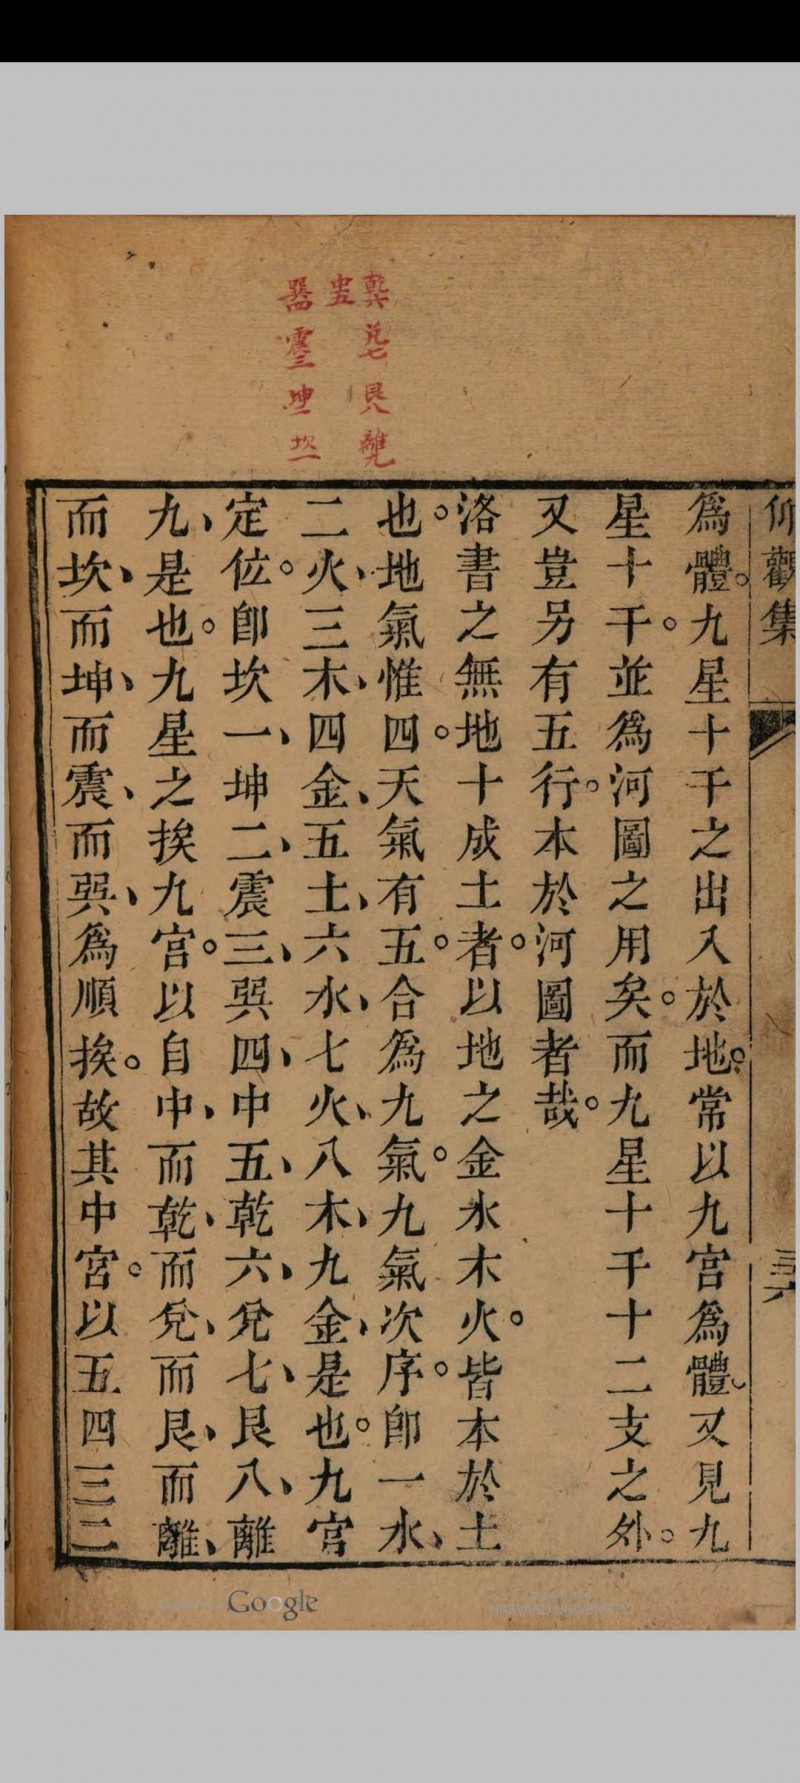 仰觀集
三六
爲體。九星十干之出入於地。常以九宮爲體。又見九
星十干。並爲河圖之用矣。而九星十干十二支之外。
又豈另有五行。本於河圖者哉。
洛書之無地十成土者。以地之金水木火。皆本於土
也。地氣惟四。天氣有五。合爲九氣。九氣次序。卽一水、
二火、三木、四金、五土、六水、七火、八木、九金、是也。九宮
定位。卽坎一、坤二、震三、巽四、中五、乾六、兌七、艮八、離
九、是也。九星之挨九宮。以自中、而乾、而兌、而艮、而離、
而坎、而坤、而震、而巽、爲順挨。故其中宮。以五四三二
乾六 兌七 艮八 離九
中五
巽四 震三 坤二 坎一
Google
HARVARD UNIVERSITY